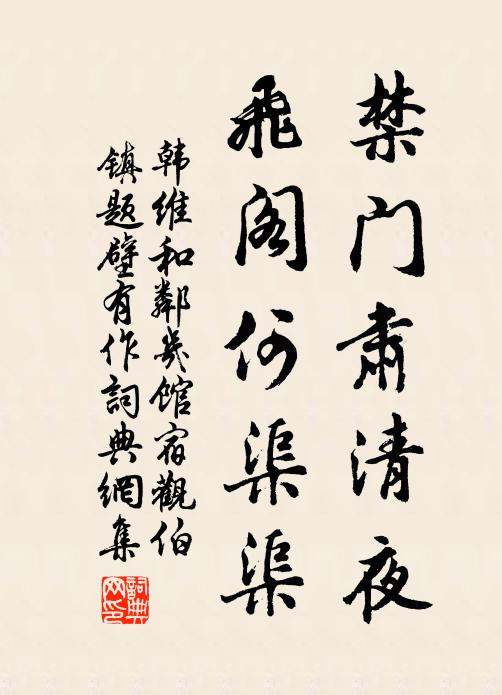 禁门肃清夜
飛阁何渠渠
韩维和鄰幾館宿觀伯
镇题壁有作詞典網集
詞典网印